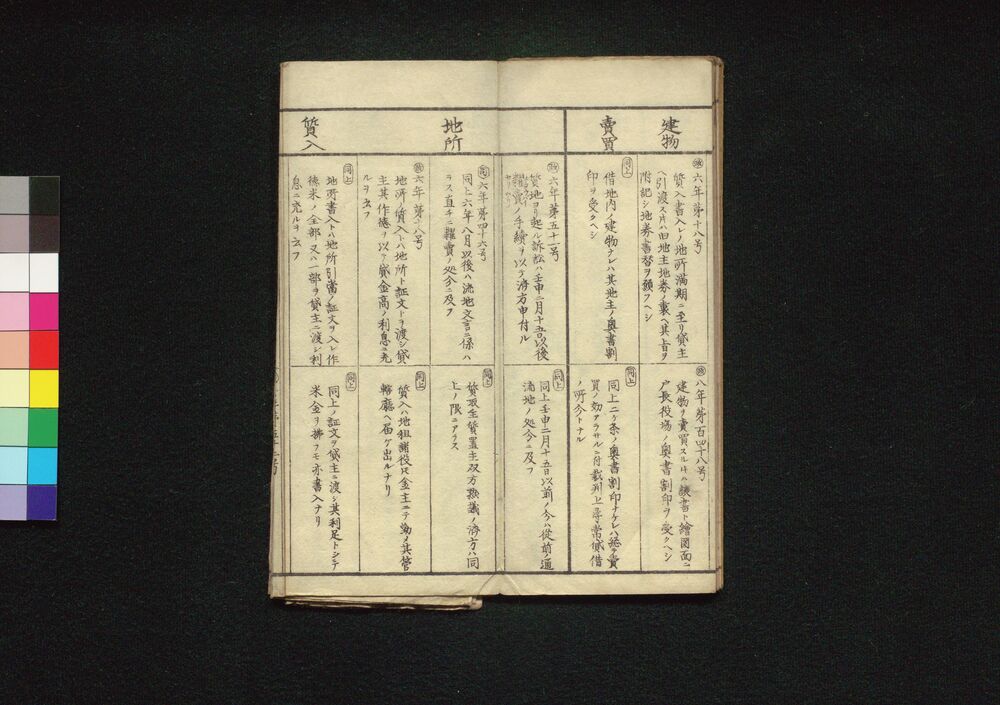 建物
賣買
地所
質入
六年第十八号
質入書入レノ地所満期ニ至リ貸主
ヘ引渡ス片ハ旧地主地券ノ裏ヘ其旨ヲ
附記シ地券書替ヲ願フヘシ
同上
借地内ノ建物ナレハ其地主ノ奥書割
印ヲ受クヘシ
六年第五十一号
質地ヨリ起ル訴訟ハ壬申二月十五日以後
糶賣ノ手続ヲ以テ済方申付ル
六年第四十六号
同上六年八月以後ハ流地文言ニ係ハ
ラス直チニ糶賣ノ処分ニ及フ
六年第十八号
地所ノ質入トハ地所ト証文トヲ渡シ貸
主其作徳ヲ以テ貸金高ノ利息ニ充
ルヲ云フ
同上
地所書入トハ地所引当ノ証文ヲ入レ作
徳米ノ全部又ハ一部ヲ貸主ニ渡シ利
息ニ充ルヲ云フ
八年第百四十八号
建物ヲ賣買スル片ハ讓書ト繪図面ニ
戸長役場ノ奥書割印ヲ受クヘシ
同上
同上二ケ条ノ奥書割印ナケレハ総テ賣
買ノ効アラサルニ付裁判上尋常貸借
ノ所分トナル
同上
同上壬申二月十五日以前ノ分ハ従前ノ通
流地ノ処分ニ及フ
同上
質取主質置主双方熟議ノ済方ハ同
上ノ限ニアラス
同上
質入ハ地租諸役尺金主ニテ勤メ其管
轄廳ヘ届ケ出ルナリ
同上
同上ノ証文ヲ貸主ニ渡シ其利足トシテ
米金ヲ拂フモ亦書入ナリ